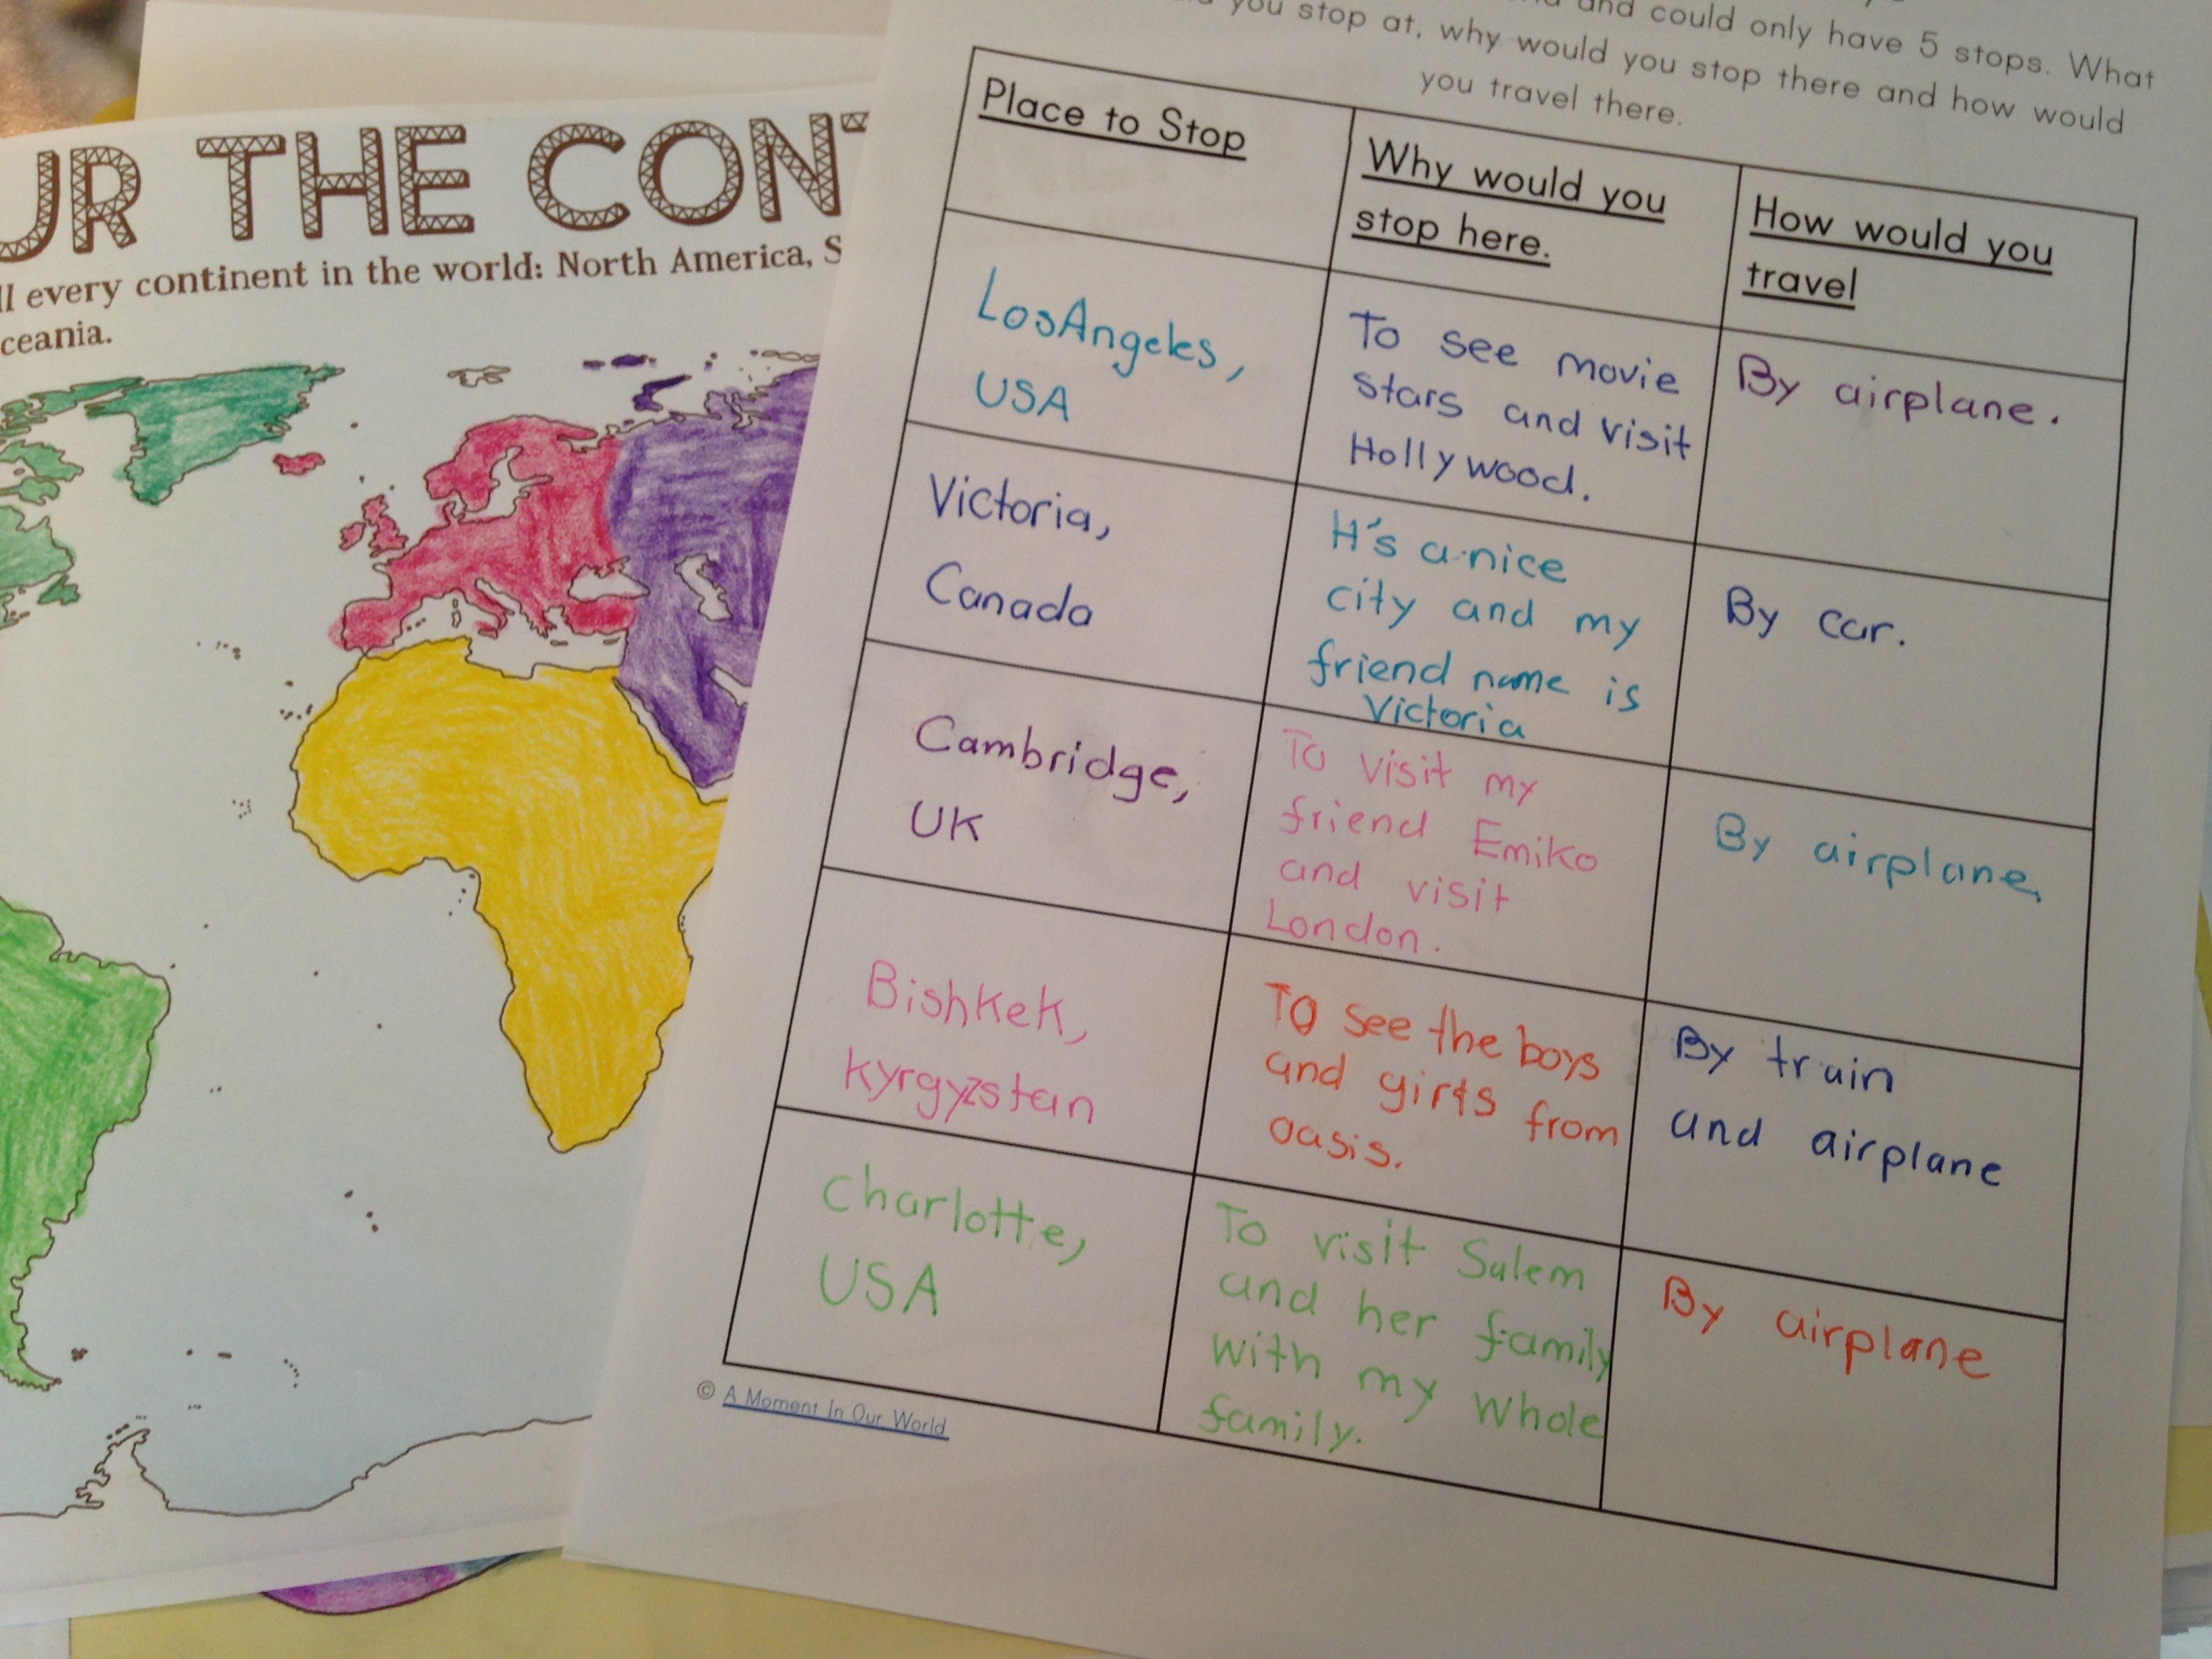 UR THE CON
ll every continent in the world: North America, S
ceania.
and could only have 5 stops. What
you stop at, why would you stop there and how would
you travel there.
Place to Stop
Why would you
stop here.
How would you
travel
LosAngeles,
USA
To see movie
stars and visit
Hollywood.
By airplane.
Victoria,
Canada
It's a nice
city and my
friend name is
Victoria
By car.
Cambridge,
UK
To visit my
friend Emiko
and visit
London.
By airplane,
Bishkek,
Kyrgyzstan
To see the boys
and girls from
oasis.
By train
and airplane
Charlotte,
USA
To visit Salem
and her family
with my whole
family.
By airplane
© A Moment In Our World